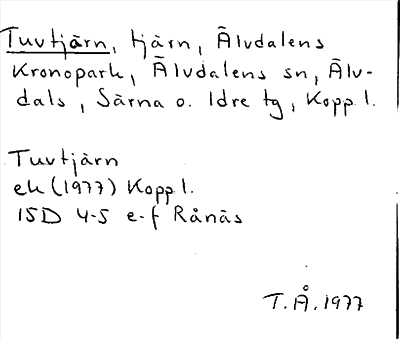 Tuvtjärn, tjärn, Älvdalens
Kronopark, Älvdalens sn, Älv-
dals, Särna o. Idre tg, Kopp l.
Tuvtjärn
ek (1977) Kopp l.
15D 4-5 e-f Rånäs
T.Å. 1977